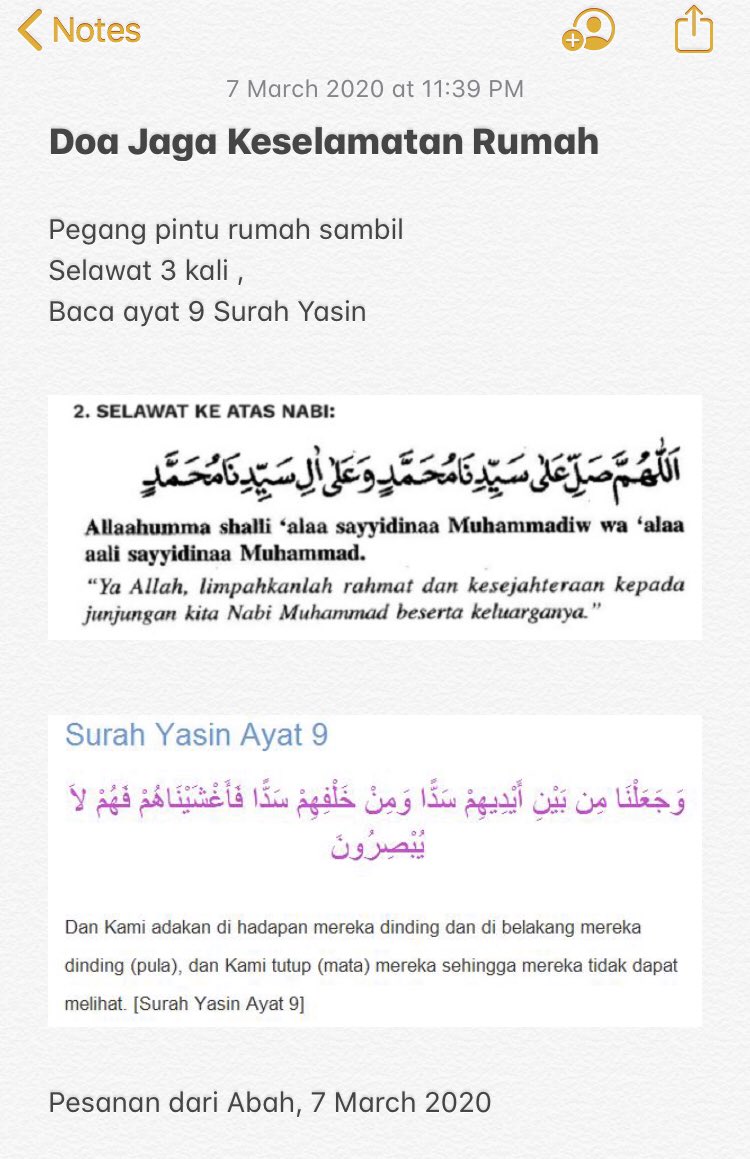 Notes
7 March 2020 at 11:39 PM
Doa Jaga Keselamatan Rumah
Pegang pintu rumah sambil
Selawat 3 kali ,
Baca ayat 9 Surah Yasin
2. SELAWAT KE ATAS NABI:
اَللّٰهُمَّ صَلِّ عَلٰى سَيِّدِنَا مُحَمَّدٍ وَعَلٰى اٰلِ سَيِّدِنَا مُحَمَّدٍ
Allaahumma shalli ‘alaa sayyidinaa Muhammadiw wa ‘alaa
aali sayyidinaa Muhammad.
“Ya Allah, limpahkanlah rahmat dan kesejahteraan kepada
junjungan kita Nabi Muhammad beserta keluarganya.”
Surah Yasin Ayat 9
وَجَعَلْنَا مِن بَيْنِ أَيْدِيهِمْ سَدًّا وَمِنْ خَلْفِهِمْ سَدًّا فَأَغْشَيْنَاهُمْ فَهُمْ لاَ
يُبْصِرُونَ
Dan Kami adakan di hadapan mereka dinding dan di belakang mereka
dinding (pula), dan Kami tutup (mata) mereka sehingga mereka tidak dapat
melihat. [Surah Yasin Ayat 9]
Pesanan dari Abah, 7 March 2020